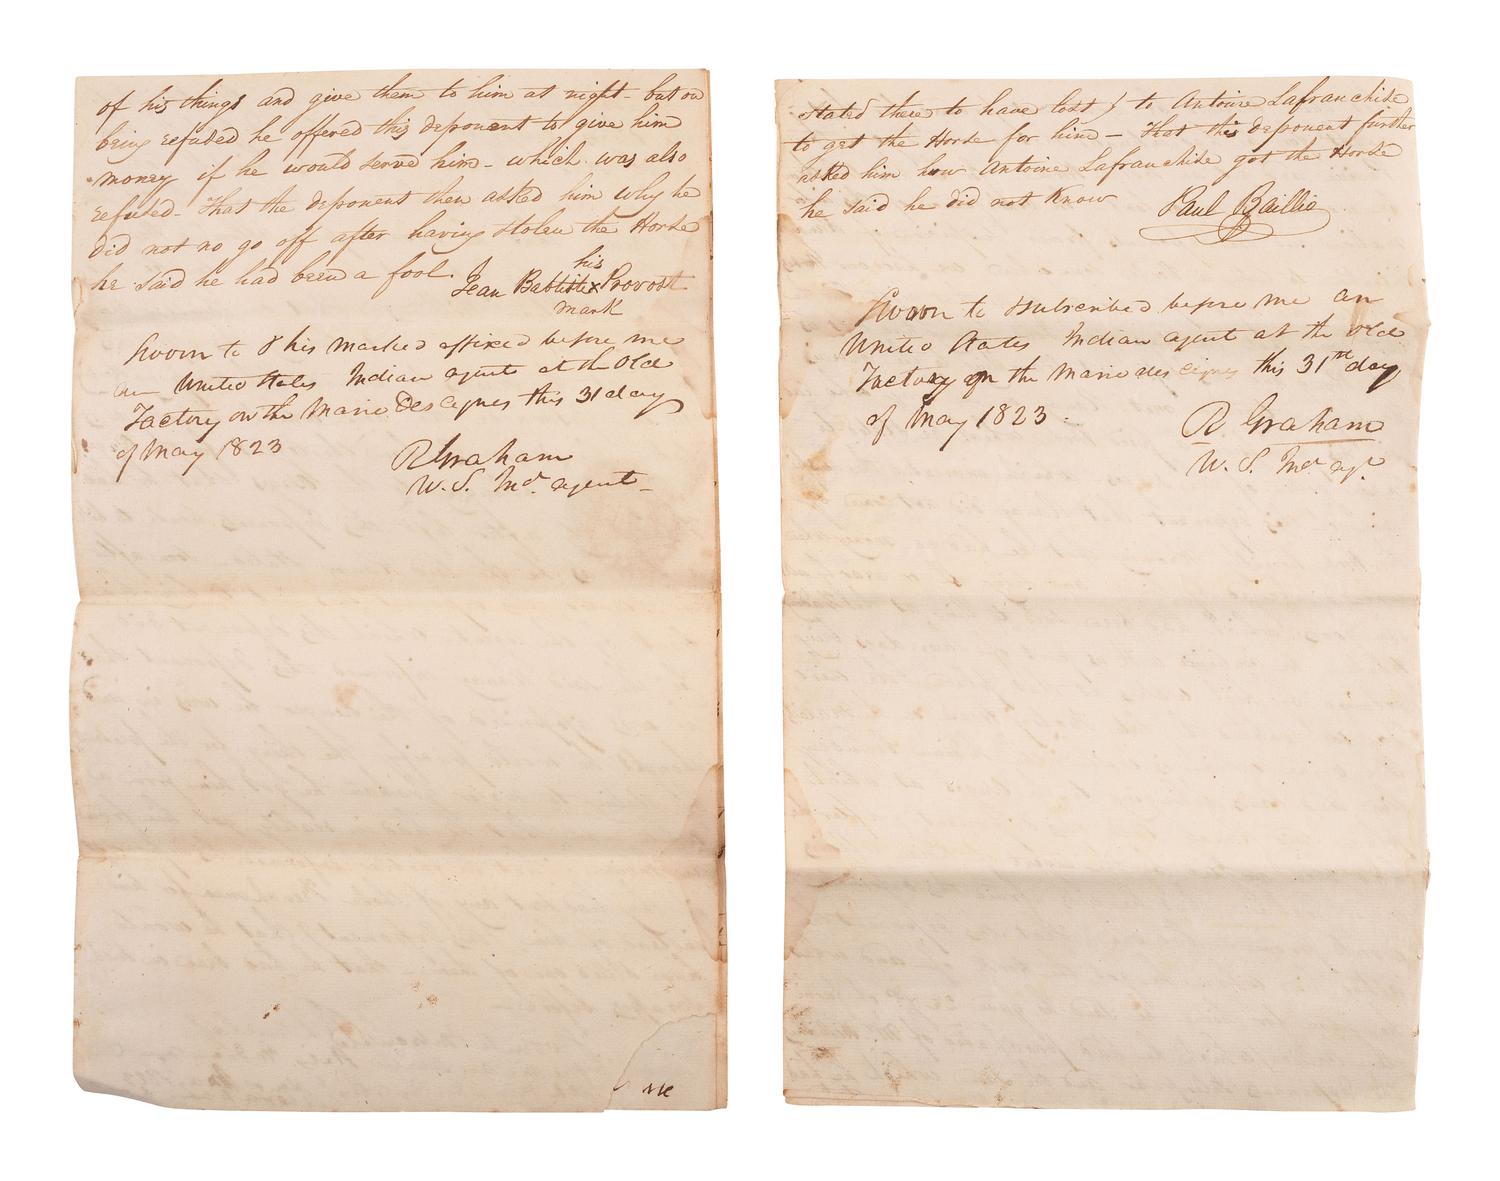 of his things and give them to him at night - but on
being refused he offered this deponent to give him
money if he would serve him - which was also
refused - That the deponent then asked him why he
did not no go off after having stolen the Horse
he said he had been a fool.
his
Jean Babtiste x Provost
mark
Sworn to & his marked affixed before me
an United States Indian agent at the Old
Factory on the Marie Des Cignes this 31 day
of May 1823
R Graham
U. S. Ind. agent -
stated there to have lost) to Antoine Lafranchise
to get the Horse for him - That this deponent further
asked him how Antoine Lafranchise got the Horse
he said he did not Know
Paul Baillio
Sworn to & subscribed before me an
United States Indian agent at the old
Factory on the Marie des cignes this 31st day
of May 1823 -
R Graham
U. S. Ind. agt